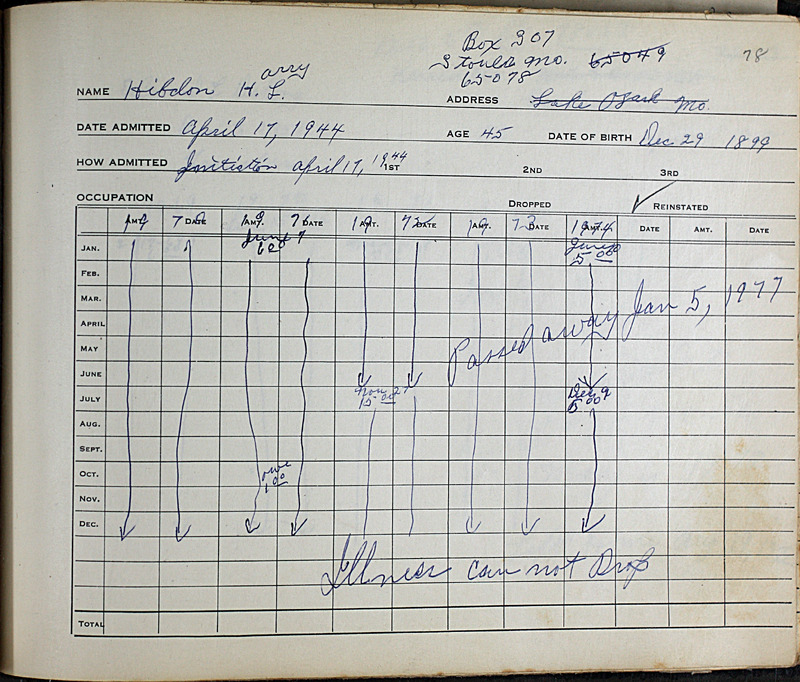 Box 307
78
Stoula Mo. 65049
65078
NAME Hibdon H. L. arry
ADDRESS Lake Ozark Mo.
DATE ADMITTED April 17, 1944 AGE 45 DATE OF BIRTH Dec 29 1899
HOW ADMITTED April 17, 1944 1ST 2ND 3RD
OCCUPATION DROPPED ✓ REINSTATED
AMT. 7 DATE AMT. 7 DATE AMT. DATE AMT. 73 DATE 1974 AMT. DATE AMT. DATE
JAN. June 7 6 00 June 5 00
FEB.
MAR.
APRIL Passed away Jan 5, 1977
MAY
JUNE
JULY Nov 27 15 00 Dec 9 5 00
AUG.
SEPT.
OCT. owe 1 00
NOV.
DEC.
Illness can not Drop
TOTAL